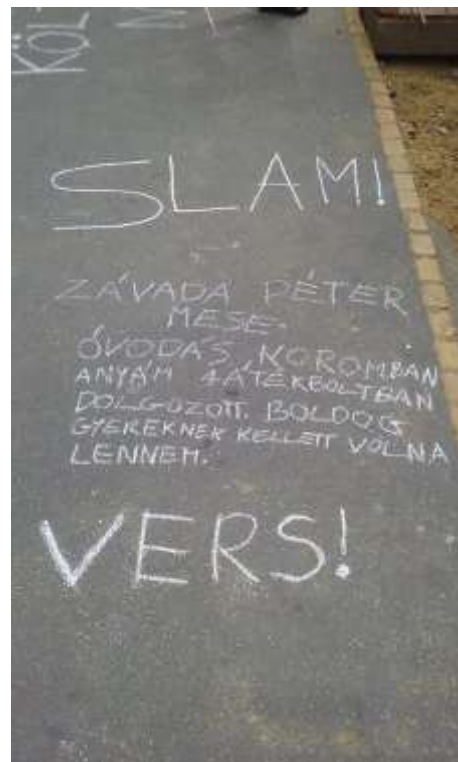 SLAM!
ZÁVADA PÉTER
MESE.
ÓVODÁS KOROMBAN
ANYÁM JÁTÉKBOLTBAN
DOLGOZOTT. BOLDOG
GYEREKNEK KELLETT VOLNA
LENNEM.
VERS!